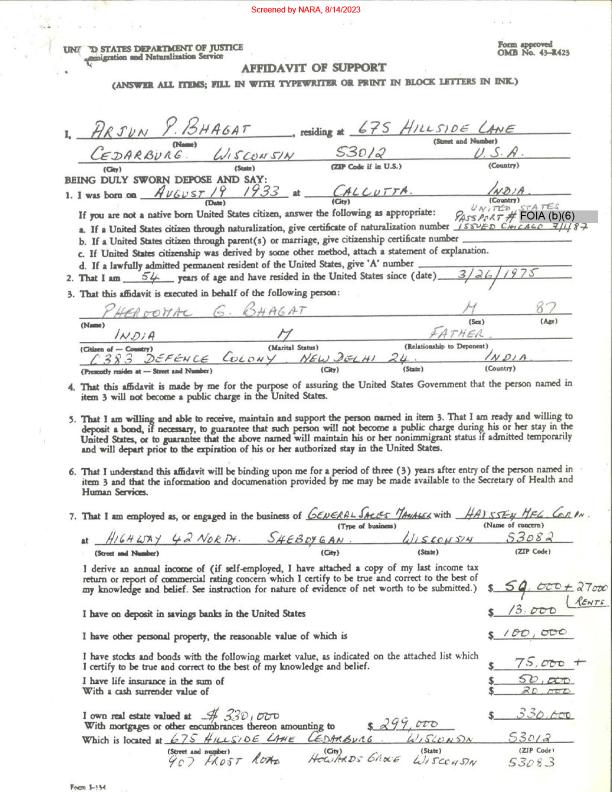 Screened by NARA, 8/14/2023
UNITED STATES DEPARTMENT OF JUSTICE
Immigration and Naturalization Service
Form approved
OMB No. 43-R423
AFFIDAVIT OF SUPPORT
(ANSWER ALL ITEMS; FILL IN WITH TYPEWRITER OR PRINT IN BLOCK LETTERS IN INK.)
I, ARJUN P. BHAGAT, residing at 675 HILLSIDE LANE
(Name) (Street and Number)
CEDARBURG WISCONSIN 53012 U.S.A.
(City) (State) (ZIP Code if in U.S.) (Country)
BEING DULY SWORN DEPOSE AND SAY:
1. I was born on AUGUST 19 1933 at CALCUTTA. INDIA
(Date) (City) (Country)
UNITED STATES
If you are not a native born United States citizen, answer the following as appropriate: PASSPORT # FOIA (b)(6)
a. If a United States citizen through naturalization, give certificate of naturalization number ISSUED CHICAGO 7/1/87
b. If a United States citizen through parent(s) or marriage, give citizenship certificate number
c. If United States citizenship was derived by some other method, attach a statement of explanation.
d. If a lawfully admitted permanent resident of the United States, give 'A' number
2. That I am 54 years of age and have resided in the United States since (date) 3/26/1975
3. That this affidavit is executed in behalf of the following person:
PHEROOMAL G. BHAGAT M 87
(Name) (Sex) (Age)
INDIA M FATHER
(Citizen of — Country) (Marital Status) (Relationship to Deponent)
C 383 DEFENCE COLONY NEW DELHI 24. INDIA
(Presently resides at — Street and Number) (City) (State) (Country)
4. That this affidavit is made by me for the purpose of assuring the United States Government that the person named in
item 3 will not become a public charge in the United States.
5. That I am willing and able to receive, maintain and support the person named in item 3. That I am ready and willing to
deposit a bond, if necessary, to guarantee that such person will not become a public charge during his or her stay in the
United States, or to guarantee that the above named will maintain his or her nonimmigrant status if admitted temporarily
and will depart prior to the expiration of his or her authorized stay in the United States.
6. That I understand this affidavit will be binding upon me for a period of three (3) years after entry of the person named in
item 3 and that the information and documenation provided by me may be made available to the Secretary of Health and
Human Services.
7. That I am employed as, or engaged in the business of GENERAL SALES MANAGER with HAYSSEN MFG CORPN.
(Type of business) (Name of concern)
at HIGHWAY 42 NORTH. SHEBOYGAN. WISCONSIN 53082
(Street and Number) (City) (State) (ZIP Code)
I derive an annual income of (if self-employed, I have attached a copy of my last income tax
return or report of commercial rating concern which I certify to be true and correct to the best of
my knowledge and belief. See instruction for nature of evidence of net worth to be submitted.) $ 59,000 + 27000
RENTS
I have on deposit in savings banks in the United States $ 13.000
I have other personal property, the reasonable value of which is $ 100,000
I have stocks and bonds with the following market value, as indicated on the attached list which
I certify to be true and correct to the best of my knowledge and belief. $ 75,000 +
I have life insurance in the sum of $ 50,000
With a cash surrender value of $ 20 000
I own real estate valued at $ 330,000 $ 330.000
With mortgages or other encumbrances thereon amounting to $ 299,000
Which is located at 675 HILLSIDE LANE CEDARBURG. WISCONSIN 53012
(Street and number) (City) (State) (ZIP Code)
907 FROST ROAD HOWARDS GROVE WISCONSIN 53083
Form I-134